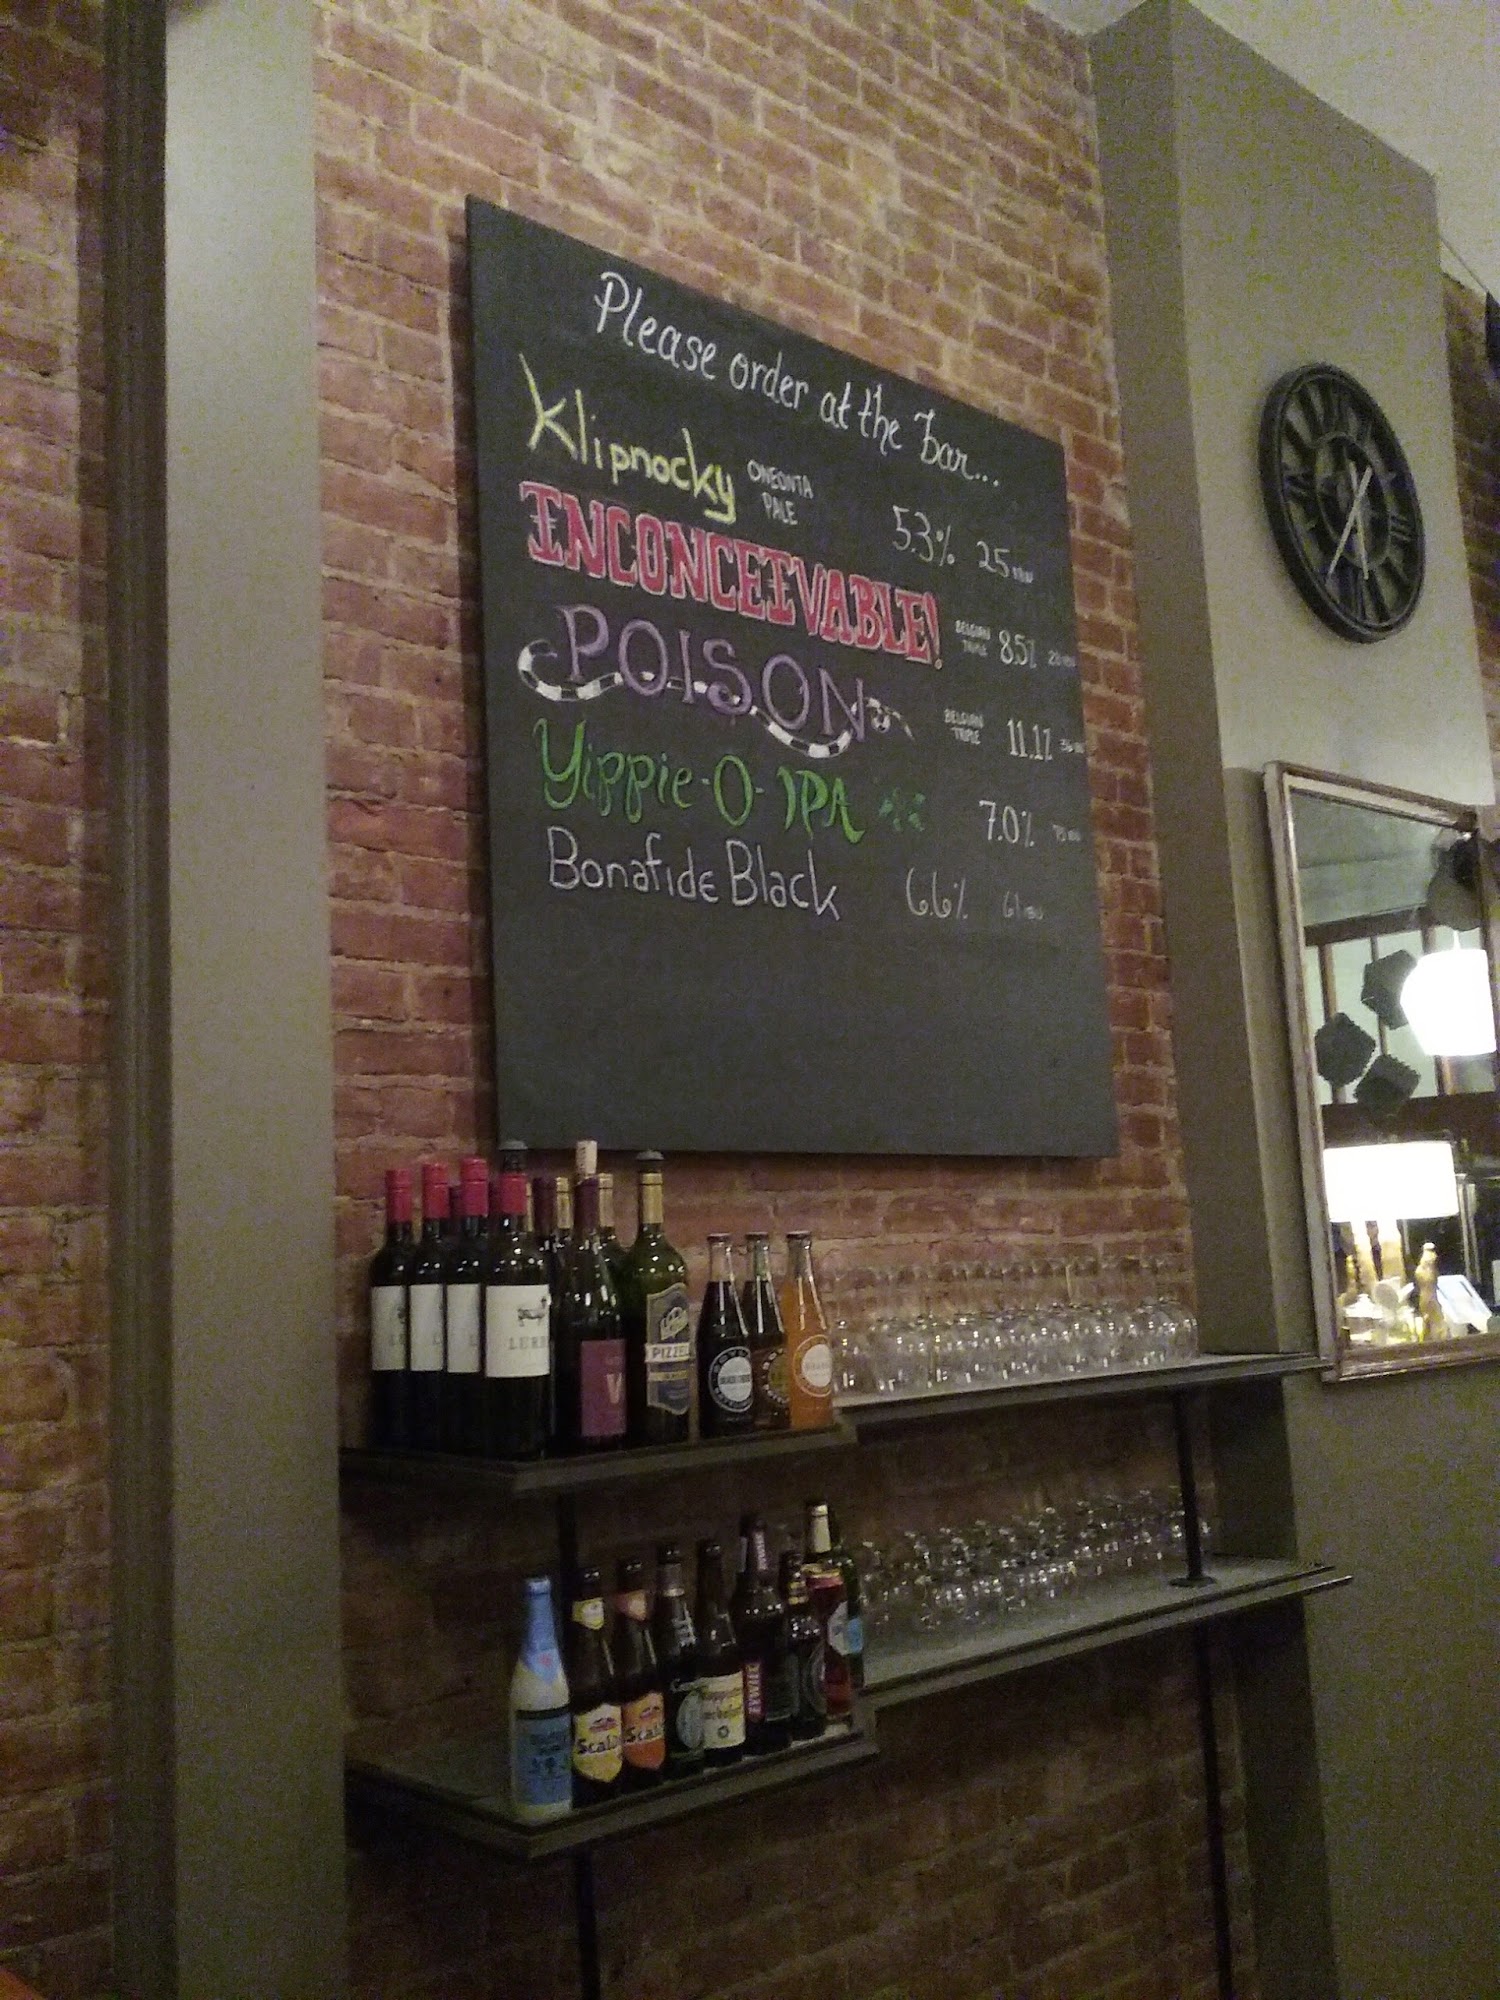 Please order at the bar...
Klipnocky ONEONTA PALE 5.3% 25 IBU
INCONCEIVABLE! BELGIAN TRIPLE 8.5%
POISON BELGIAN TRIPLE 11.1%
Yippie-O-IPA 7.0%
Bonafide Black 6.6% 61 IBU
PIZZE
V
Scaldis
Scaldis
ŻYWIEC